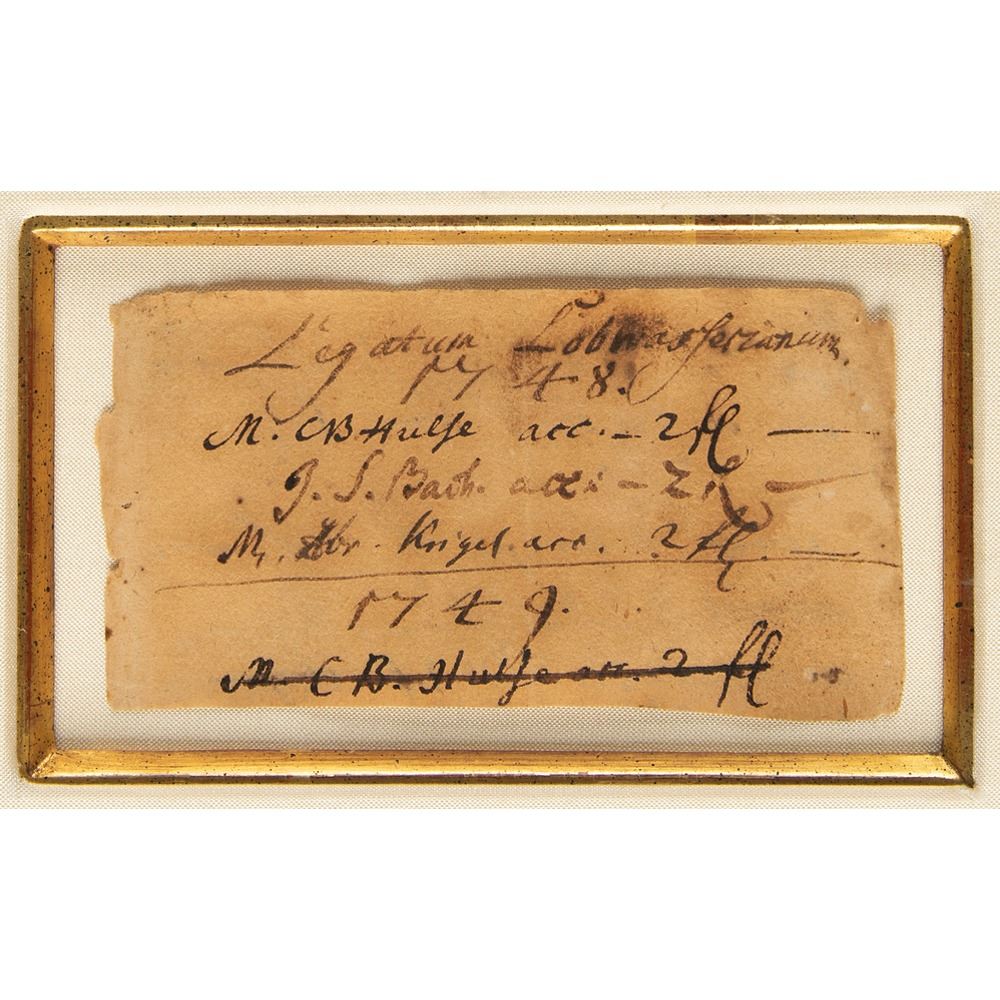 Legatum Lobwasserianum.
1748.
M. CB Hulse acc. – 2 fl —
J. S. Bach. acc. – 2 fl —
M. Abr. Krigel. acc. 2 fl. —
1749.
M. C B. Hulse acc. 2 fl